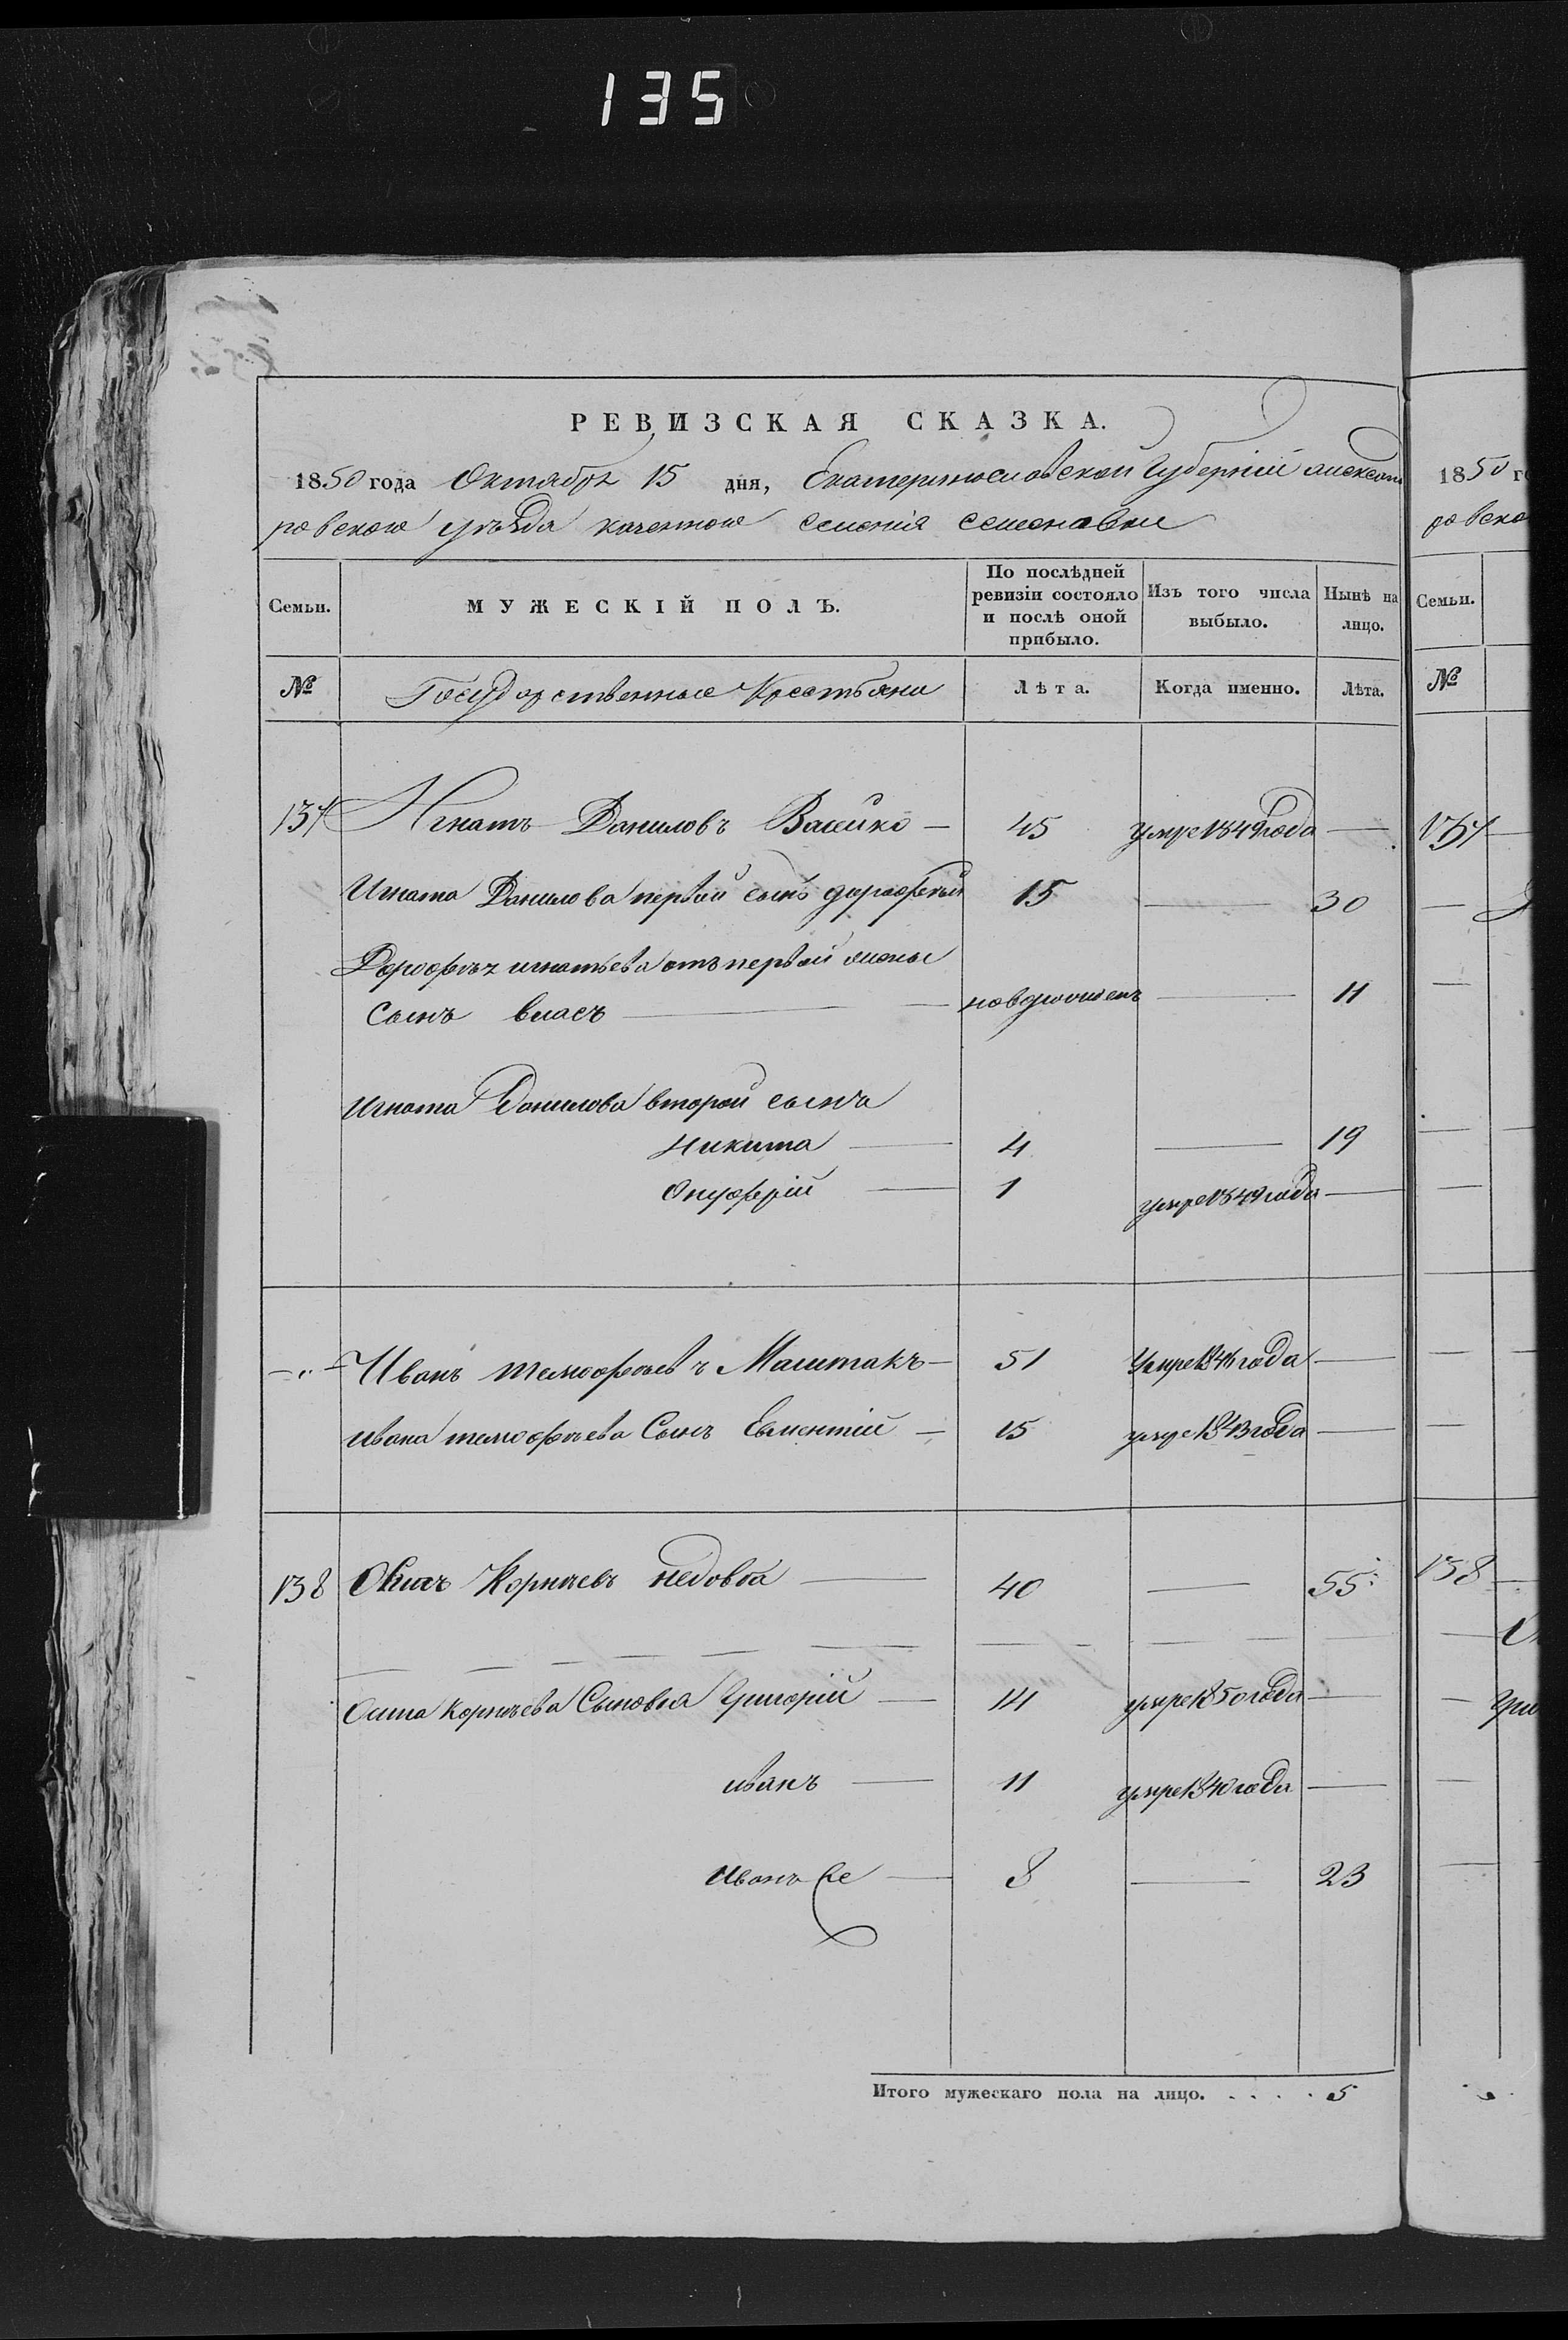 135
РЕВИЗСКАЯ СКАЗКА.
1850 года Октября 15 дня, Екатеринославской Губерніи александ
ровского уѣзда казенного селенія семеновки
Семьи. МУЖЕСКІЙ ПОЛЪ. По послѣдней ревизіи состояло и послѣ оной прибыло. Изъ того числа выбыло. Ныне на лицо.
№ Государственные Крестьяни Лѣта. Когда именно. Лѣта.
137 Игнатъ Даниловъ Васейко — 45 умре 1849 года —
Игната Данилова первой сынъ дорофей 15 — 30
Дорофѣя игнатьева отъ первой жоны
Сынъ власъ — новорожденъ — 11
Игната Данилова второй сынъ
Никита — 4 — 19
Онуфрій — 1 умре 1849 года —
—"— Иванъ тимофѣевъ — 51 Умре года —
ивана тимофѣева Сынъ — 15 умре 1843 года —
138 Осипъ Корнѣевъ — 40 — 55
Осипа Корнѣева Сыновья Григорій — 14 умре 1850 года —
иванъ — 11 умре 1840 года —
Иванъ же — 8 — 23
Итого мужескаго пола на лицо. . . . . 5
1850 го
ровско
Семьи.
№
137
138
Гри